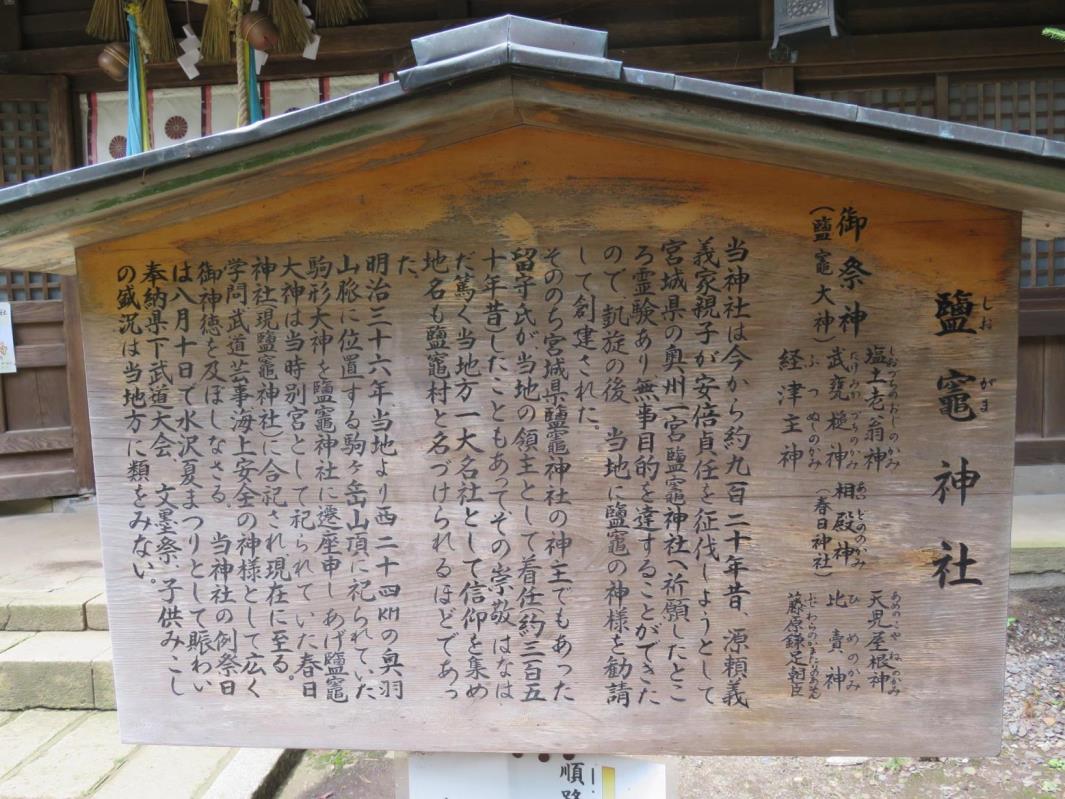 鹽竈神社
しおがま
御祭神
(鹽竈大神)
塩土老翁神
しおつちのおじのかみ
武甕槌神
たけみかづちのかみ
経津主神
ふつぬしのかみ
相殿神
あいどののかみ
(春日神社)
天児屋根神
あめのこやねのかみ
比売神
ひめのかみ
藤原鎌足朝臣
ふじわらのかまたりのあそん
当神社は今から約九百二十年昔、源頼義
義家親子が安倍貞任を征伐しようとして
宮城県の奥州一宮鹽竈神社へ祈願したとこ
ろ霊験あり無事目的を達することができた
ので、凱旋の後、当地に鹽竈の神様を勧請
して創建された。
そののち宮城県鹽竈神社の神主でもあった
留守氏が、当地の領主として着任(約三百五
十年昔)したこともあって、その崇敬はなは
だ篤く当地方一大名社として信仰を集め
地名も鹽竈村と名づけられるほどであっ
た。
明治三十六年、当地より西二十四㎞の奥羽
山脈に位置する駒ヶ岳山頂に祀られていた
駒形大神を鹽竈神社に遷座申しあげ鹽竈
大神は当時別宮として祀られていた春日
神社(現鹽竈神社)に合祀され、現在に至る。
学問武道芸事海上安全の神様として広く
御神徳を及ぼしなさる。当神社の例祭日
は八月十日で水沢夏まつりとして賑わい
奉納県下武道大会、文墨祭、子供みこし
の盛況は当地方に類をみない。
順路